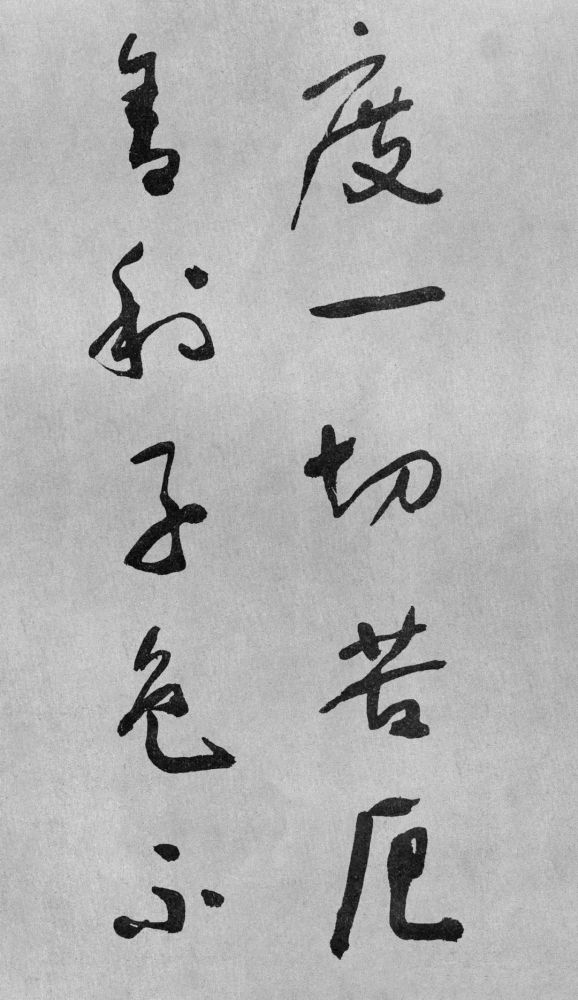 度一切苦厄
舎利子色不